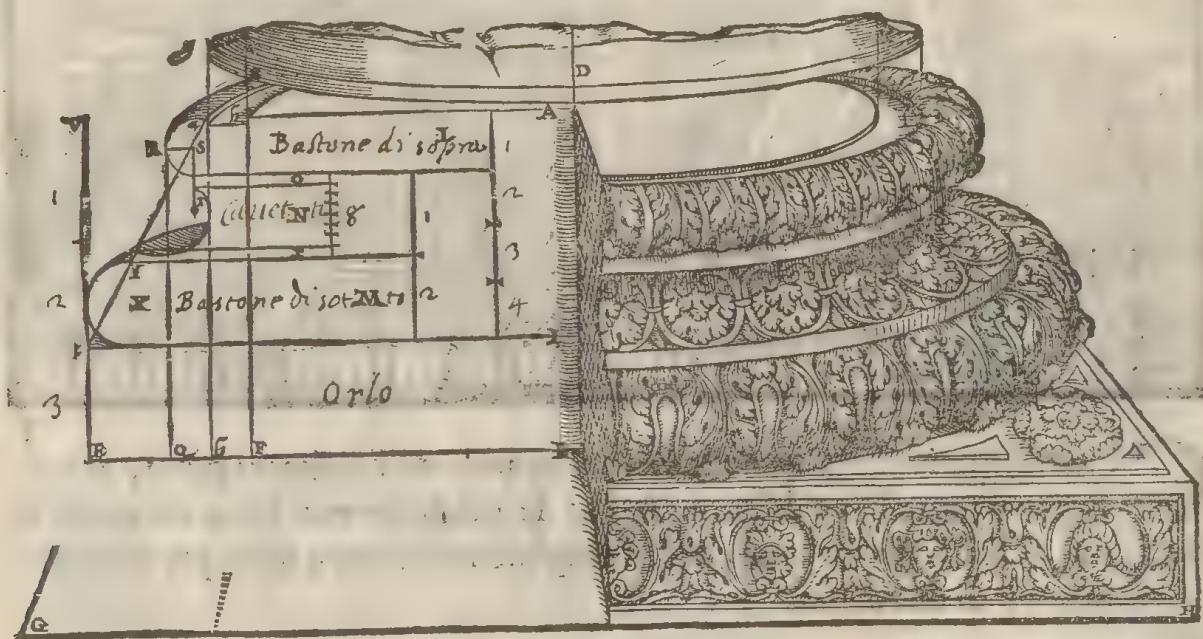 D
A
V
R
S
Bastone di sopra
1
O
1
2
Cauet N to
8
1
3
X
2
X
Bastone di sot M to
2
4
3
Orlo
E Q G F
Q
H